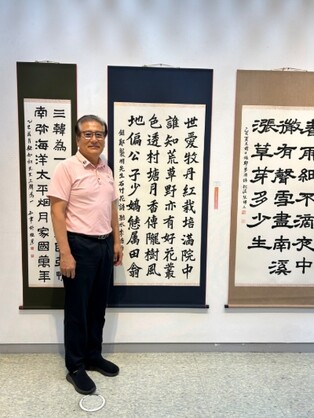 春雨細不滴夜中
微有聲雪盡南溪
漲草芽多少生
世愛牧丹紅栽培滿院中
誰知荒草野亦有好花叢
色透村塘月香傳隴樹風
地偏公子少嬌態屬田翁
錄鄭襲明先生石竹花詩
三韓為一
南弥海洋太平烟月家國萬年